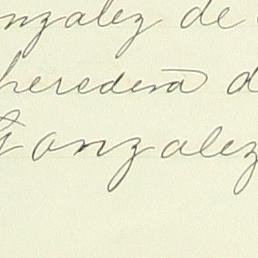 nzalez de
heredera d
Gonzalez